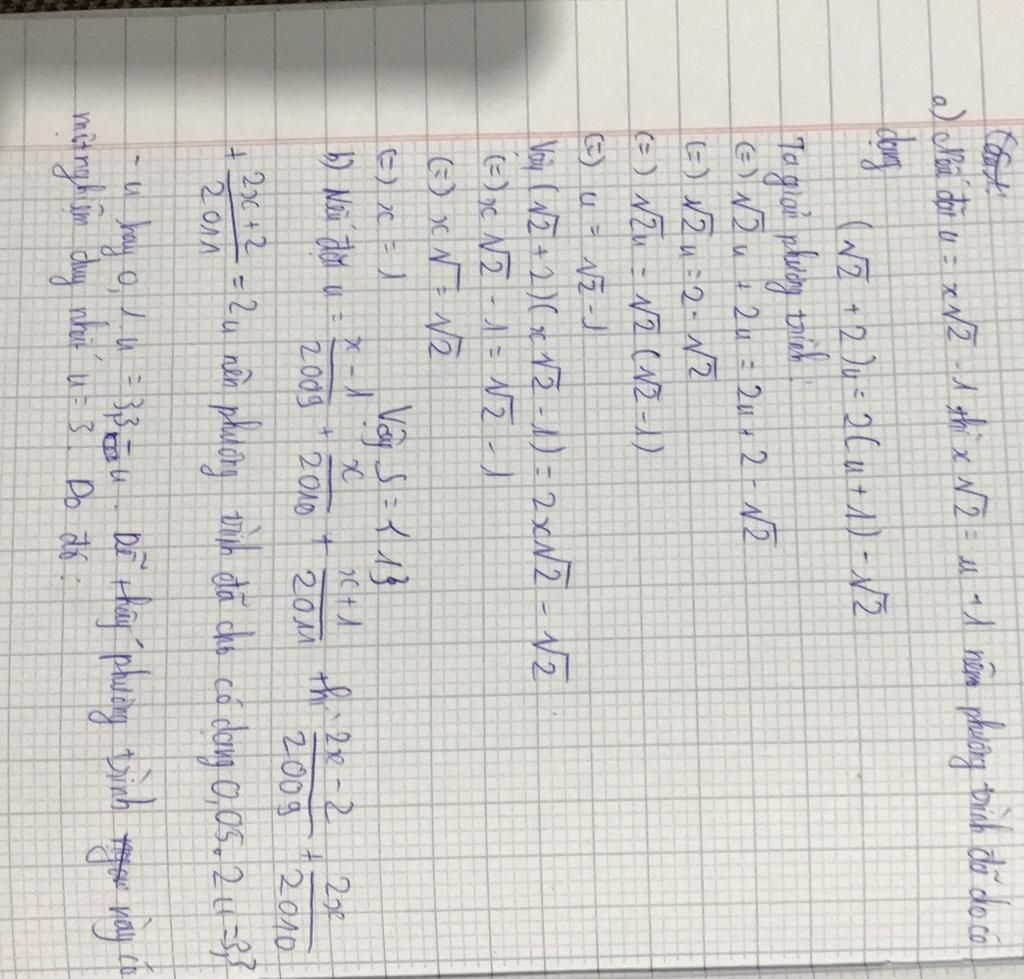 a) Nếu đặt u = x√2 - 1 thì x√2 = u + 1 nên phương trình đã do có
dạng
(√2 + 2)u = 2(u + 1) - √2
Ta giải phương trình:
(=) √2u + 2u = 2u + 2 - √2
(=) √2u = 2 - √2
(=) √2u = √2(√2 - 1)
(=) u = √2 - 1
Vậy (√2 + 2)(x√2 - 1) = 2x√2 - √2
(=) x√2 - 1 = √2 - 1
(=) x√ = √2
(=) x = 1 Vậy S = {1}
b) Nếu đặt u = x - 1/2009 + x/2010 + x + 1/2011 thì 2x - 2/2009 + 2x/2010
+ 2x + 2/2011 = 2u nên phương trình đã cho có dạng 0,05. 2u = 3,3
- u hay 0,1.u = 3,3 - u. Dễ thấy phương trình này có
một nghiệm duy nhất u = 3. Do đó: